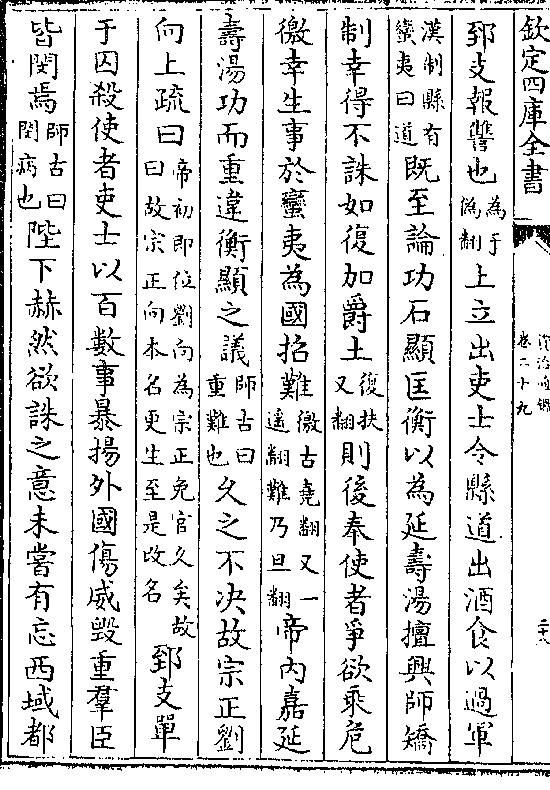 欽定四庫全書
卷二十九
郅支報讐也為于偽翻上立出吏士令縣道出酒食以過軍
漢制縣有蠻夷曰道既至論功石顯匡衡以為延壽湯擅興師矯
制幸得不誅如復加爵土復扶又翻則後奉使者爭欲乘危
徼幸生事於蠻夷為國招難徼古堯翻又一遥翻難乃旦翻帝内嘉延
壽湯功而重違衡顯之議師古曰重難也久之不決故宗正劉
向上疏曰帝初即位劉向為宗正免官久矣故曰故宗正向本名更生至是改名郅支單
于囚殺使者吏士以百數事暴揚外國傷威毀重羣臣
皆閔焉師古曰閔病也陛下赫然欲誅之意未嘗有忘西域都